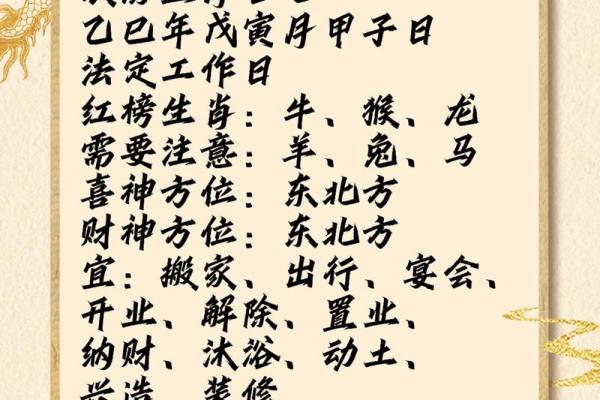 乙巳年戊寅月甲子日
法定工作日
红榜生肖：牛、猴、龙
需要注意：羊、兔、马
喜神方位：东北方
财神方位：东北方
宜：搬家、出行、宴会、
开业、解除、置业、
纳财、沐浴、动土、
装修